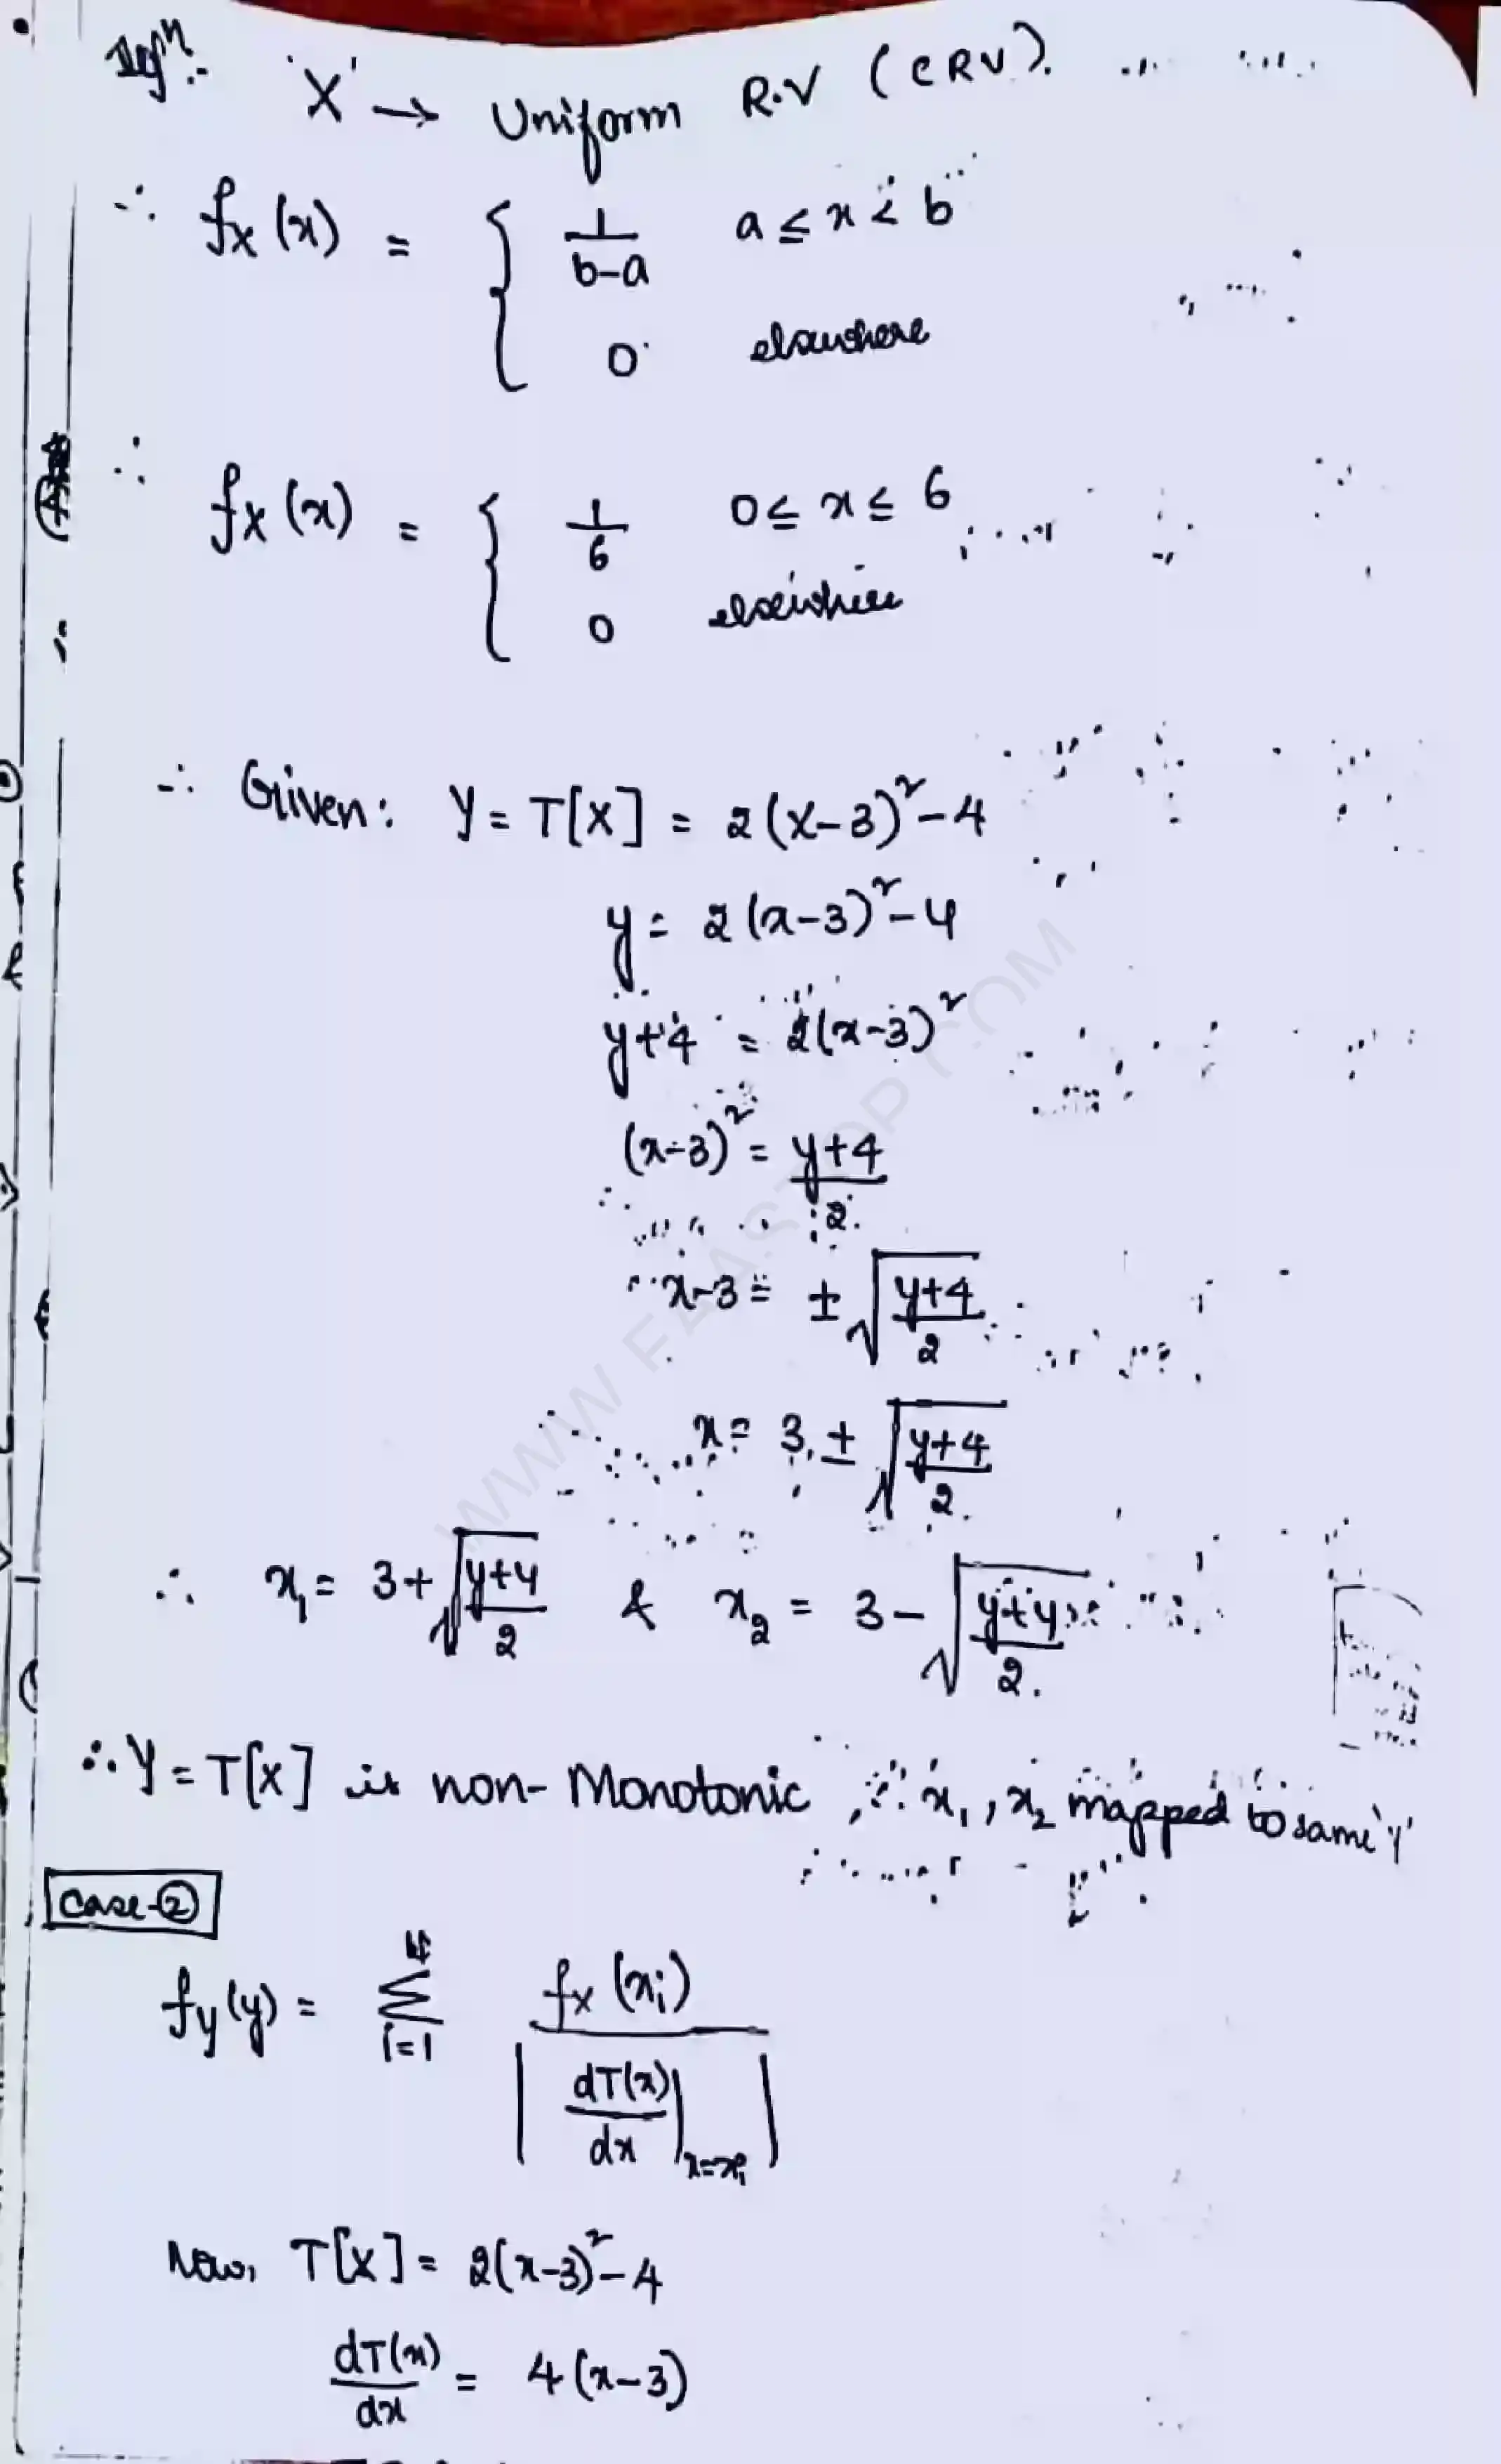 'X' → Uniform R.V (CRV).
∴ fx(x) = { 1/(b-a) a ≤ x < b
0 elsewhere
∴ fx(x) = { 1/6 0 ≤ x ≤ 6
0 elsewhere
∴ Given: Y = T[X] = 2(X-3)² - 4
y = 2(x-3)² - 4
y+4 = 2(x-3)²
(x-3)² = (y+4)/2.
x-3 = ± √((y+4)/2)
x = 3 ± √((y+4)/2.)
∴ x₁ = 3 + √((y+4)/2) & x₂ = 3 - √((y+4)/2.)
∴ Y = T[X] is non-Monotonic, ∵ x₁, x₂ mapped to same 'Y'
Case-②
fy(y) = Σ i=1 fx(xi) / |dT(x)/dx|x=xi|
Now, T[X] = 2(x-3)² - 4
dT(x)/dx = 4(x-3)